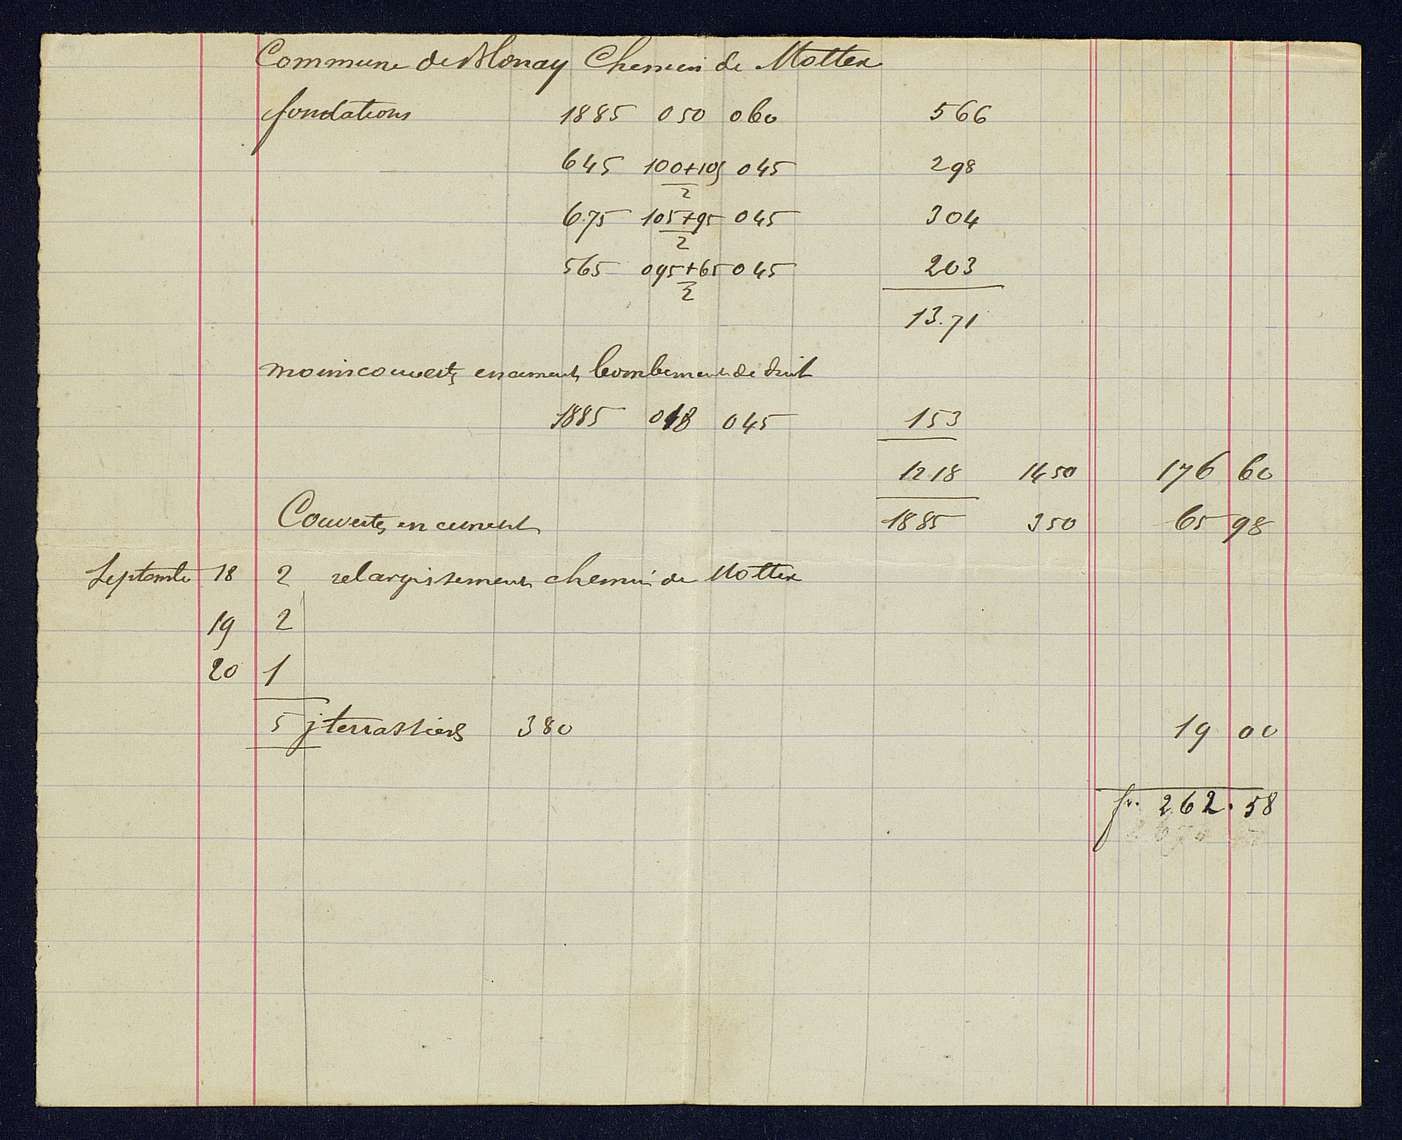 Commune de Blonay Chemin de Mottex
fondations 1885 050 060 566
645 100+105 045 298
2
675 105+95 045 304
2
565 095+65 045 203
2
13.71
moins couverte en ciment bombement de
1885 018 045 153
1218 1450 176 60
Couverte en ciment 1885 350 65 98
Septembre 18 2 relargissement chemin de Mottex
19 2
20 1
5 j terrassiers 380 19 00
fr. 262.58